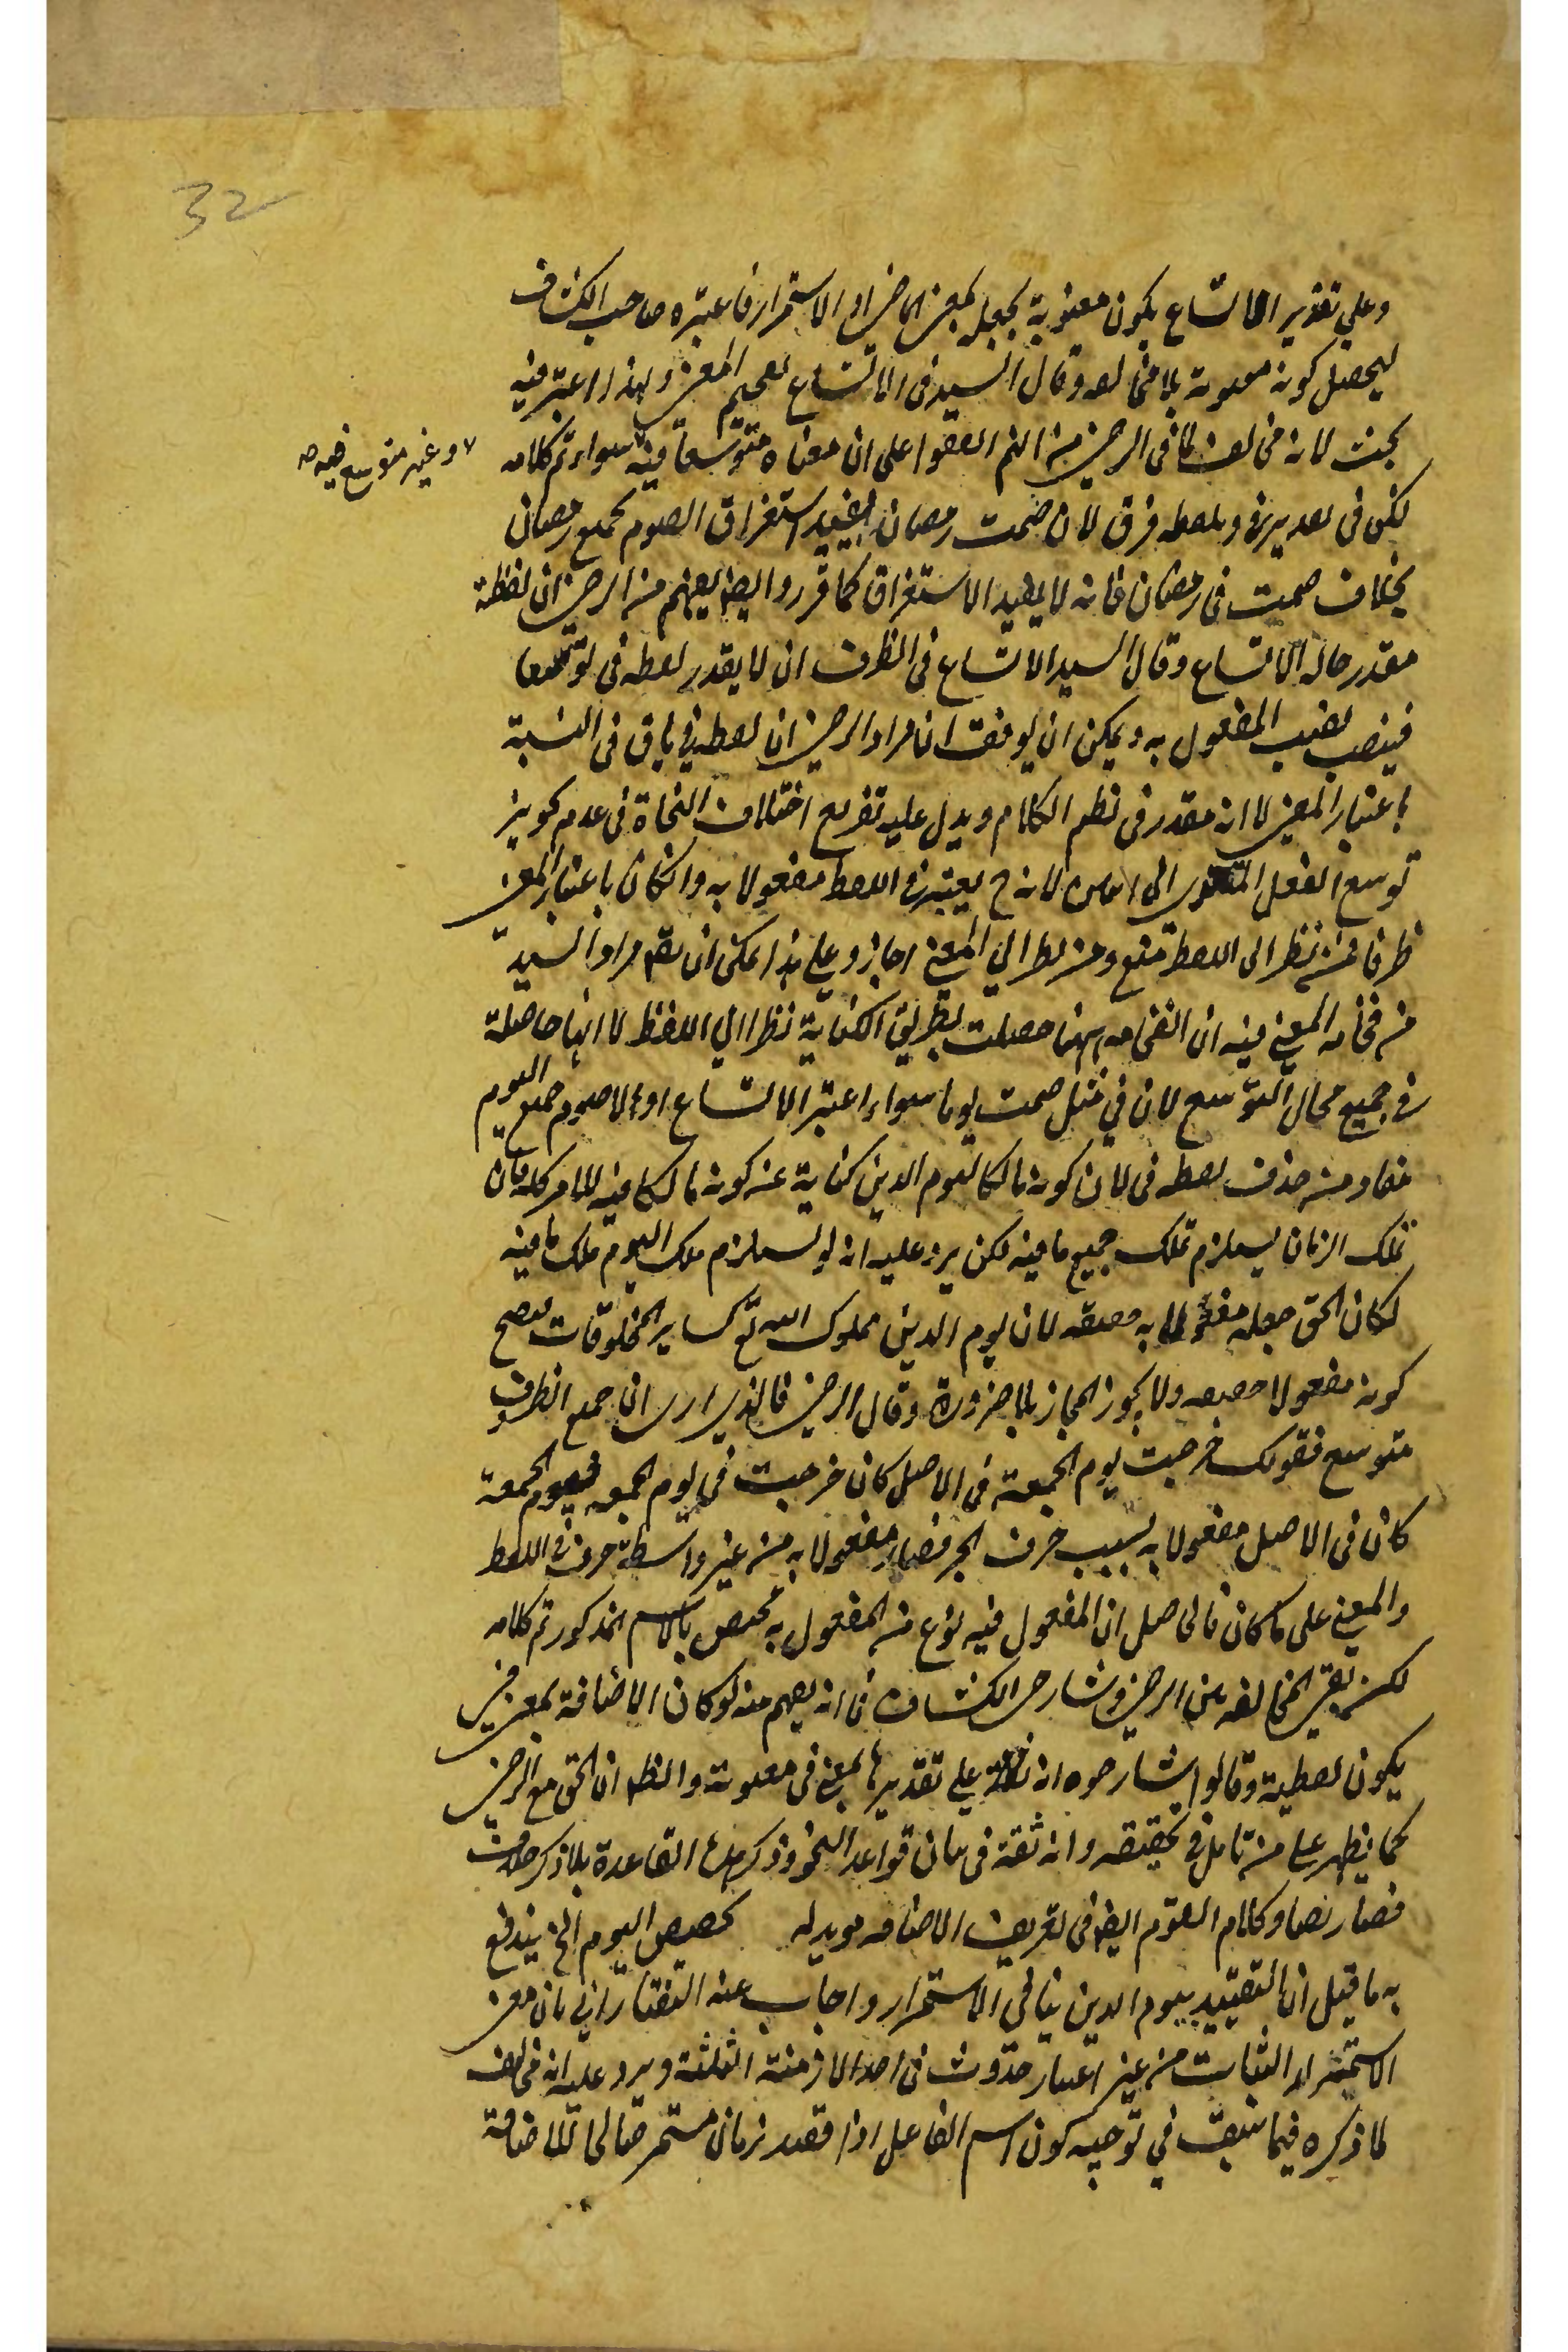 32
وعلى تقدير الاتساع يكون معنوية بجعل بمعنى الماضى او الاستمرار فاعتبره صاحب الكشاف
ليحصل كونه معنوية بلا مخالفة وقال السيد فى الاتساع تفخيم المعنى ولهذا اعتبر فيه
بحث لانه مخالف لما فى الرضى من انهم اتفقوا على ان معناه متوسعا فيه سواء تم كلامه
وغير متوسع فيه صح
لكن فى تقدير فى وبلفظه فرق لان صمت رمضان يفيد استغراق الصوم بجميع رمضان
بخلاف صمت فى رمضان فانه لا يفيد الاستغراق كما قرروا ايضا يفهم من الرضى ان لفظة
مقدر حال الاتساع وقال السيد الاتساع فى الظرف ان لا يقدر لفظه فى توسعا
فينصب نصب المفعول به ويمكن ان يوفق ان مراد الرضى ان لفظه فى باق فى النسبة
باعتبار المعنى لا انه مقدر فى نظم الكلام ويدل عليه تفريع اختلاف النحاة فى عدم تجويز
توسع الفعل المتعدى الى اثنين لانه ح يعتبر فى اللفظ مفعولا به وانكان باعتبار المعنى
ظرفا فمن نظر الى اللفظ منع ومن نظر الى المعنى اجاز وعلى هذا يمكن ان يقم مراد السيد
من فخامة المعنى فيه ان الفخامه ههنا حصلت بطريق الكناية نظرا الى اللفظ لا انها حاصلة
فى جميع محال التوسع لان فى مثل صمت يوما سواء اعتبر الاتساع او لا صوم جميع اليوم
مفاد من حذف لفظه فى لان كونه مالكا ليوم الدين كناية عن كونه مالكا فيه للامر كله فان
تملك الزمان يستلزم تملك جميع ما فيه لكن يرد عليه انه لو استلزم ملك اليوم ملك ما فيه
لكان الحق جعله مفعولا به حقيقه لان يوم الدين مملوك الله تع كساير المخلوقات فيصح
كونه مفعولا حقيقه ولا يجوز المجاز بلا ضرورة وقال الرضى فالذى ارى ان جميع الظروف
متوسع فقولك خرجت يوم الجمعة فى الاصل كان خرجت فى يوم الجمعه فيوم الجمعة
كان فى الاصل مفعولا به بسبب حرف الجر فصار مفعولا به من غير واسطة حرف فى اللفظ
والمعنى على ما كان فالحاصل ان المفعول فيه نوع من المفعول به مختص بالاسم المذكور تم كلامه
لكن بقى المخالفه بين الرضى وشارحى الكشاف فانه يفهم منه لو كان الاضافة بمعنى فى
يكون لفظية وقالوا شارحوه انه على تقديرها بمعنى فى معنوية والظ ان الحق مع الرضى
كما يظهر على من تامل فى تحقيقه وانه ثقة فى بيان قواعد النحو وذكر هذا القاعدة بلا ذكر خلاف
فصار نصا وكلام القوم ايضا فى تعريف الاضافه مويد له تخصيص اليوم الخ يندفع
به ما قيل ان التقييد بيوم الدين ينافى الاستمرار واجاب عنه التفتازانى بان معنى
الاستمرار الثبات من غير اعتبار حدوث فى احد الازمنة الثلثة ويرد عليه انه مخالف
لما ذكره فيما سبق فى توجيه كون اسم الفاعل اذا قصد زمان مستمر صالحا للاضافة